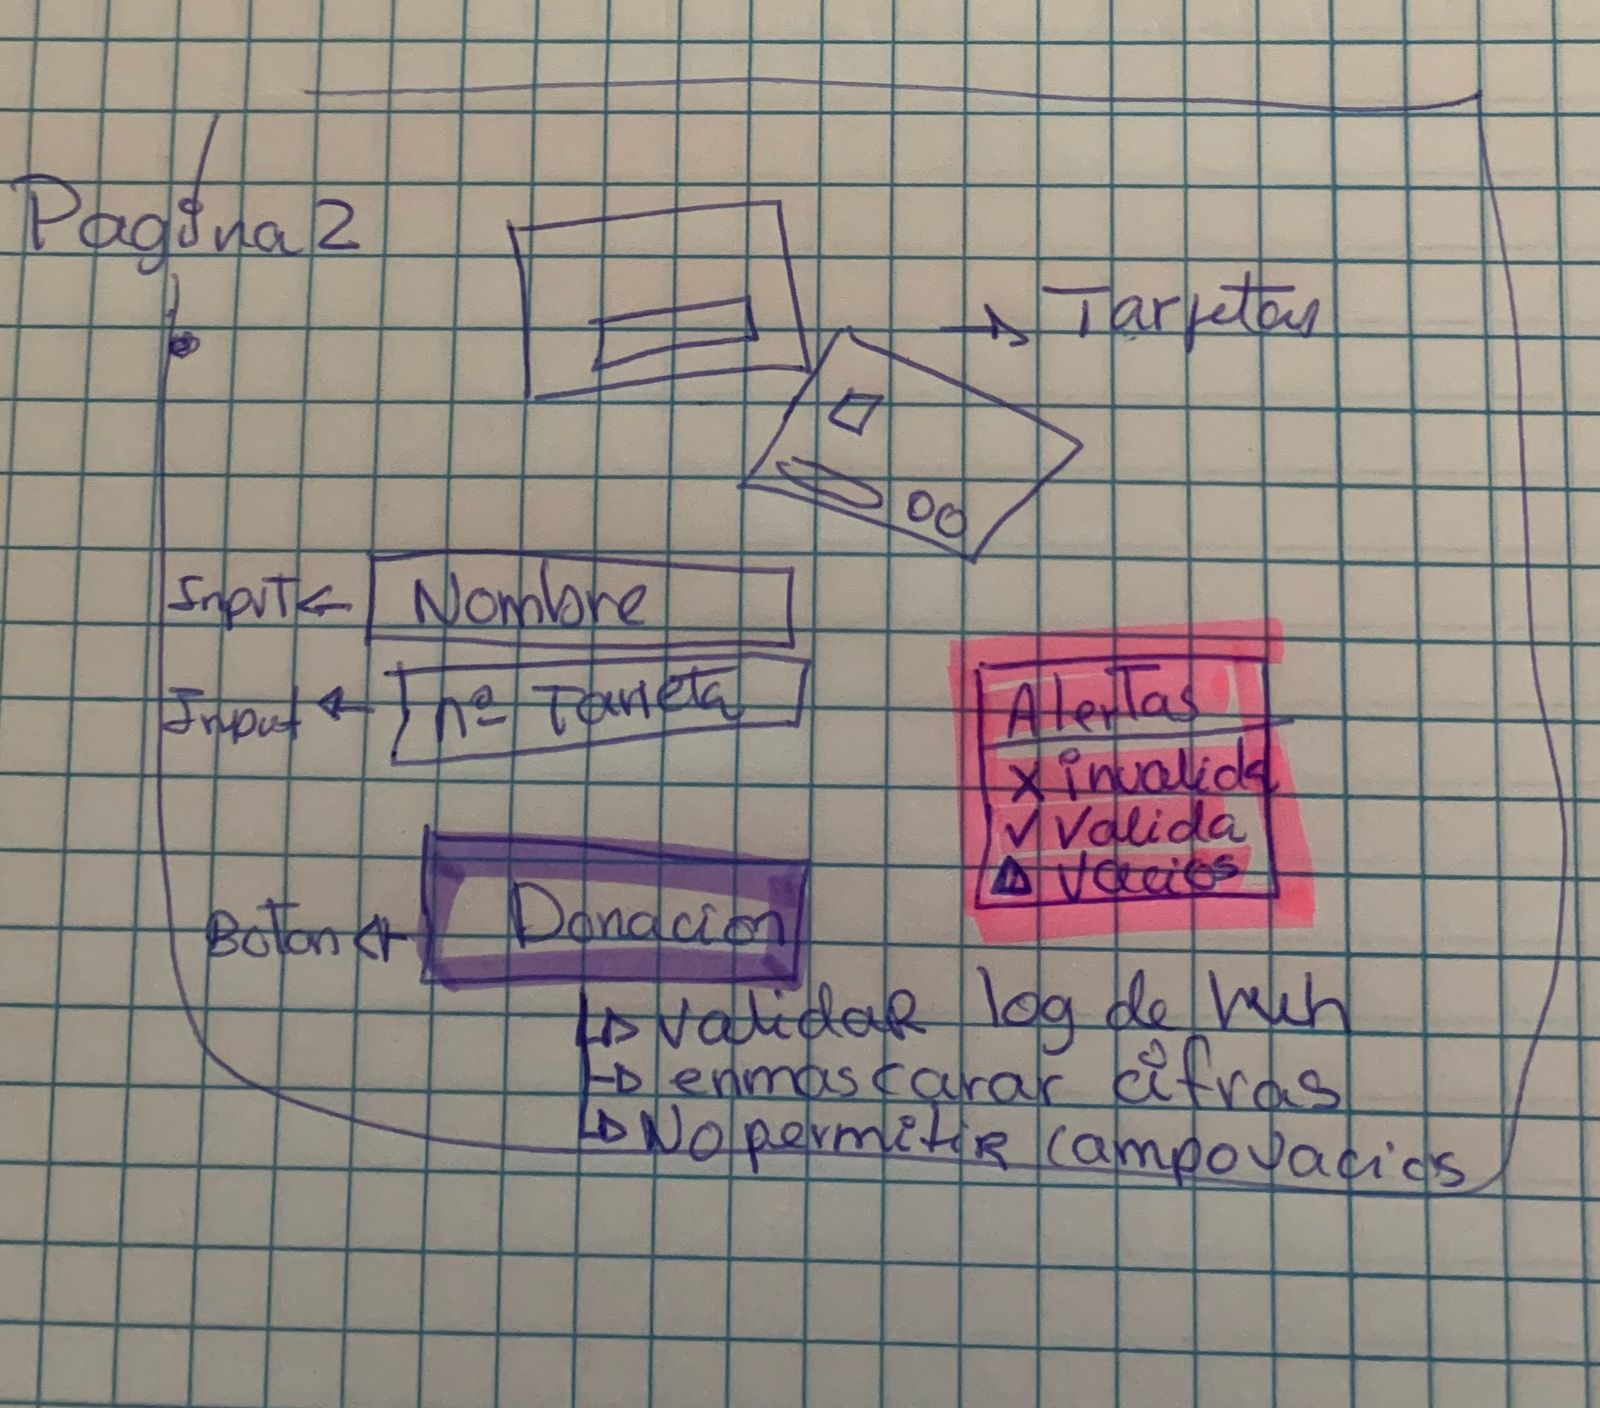 Pagina 2
→ Tarjetas
Input ← Nombre
Input ← nº Tarjeta
Alertas
x invalida
✓ valida
⚠ vacios
Boton ← Donacion
↳ validar log de huh
→ enmascarar cifras
↳ No permitir campo vacios